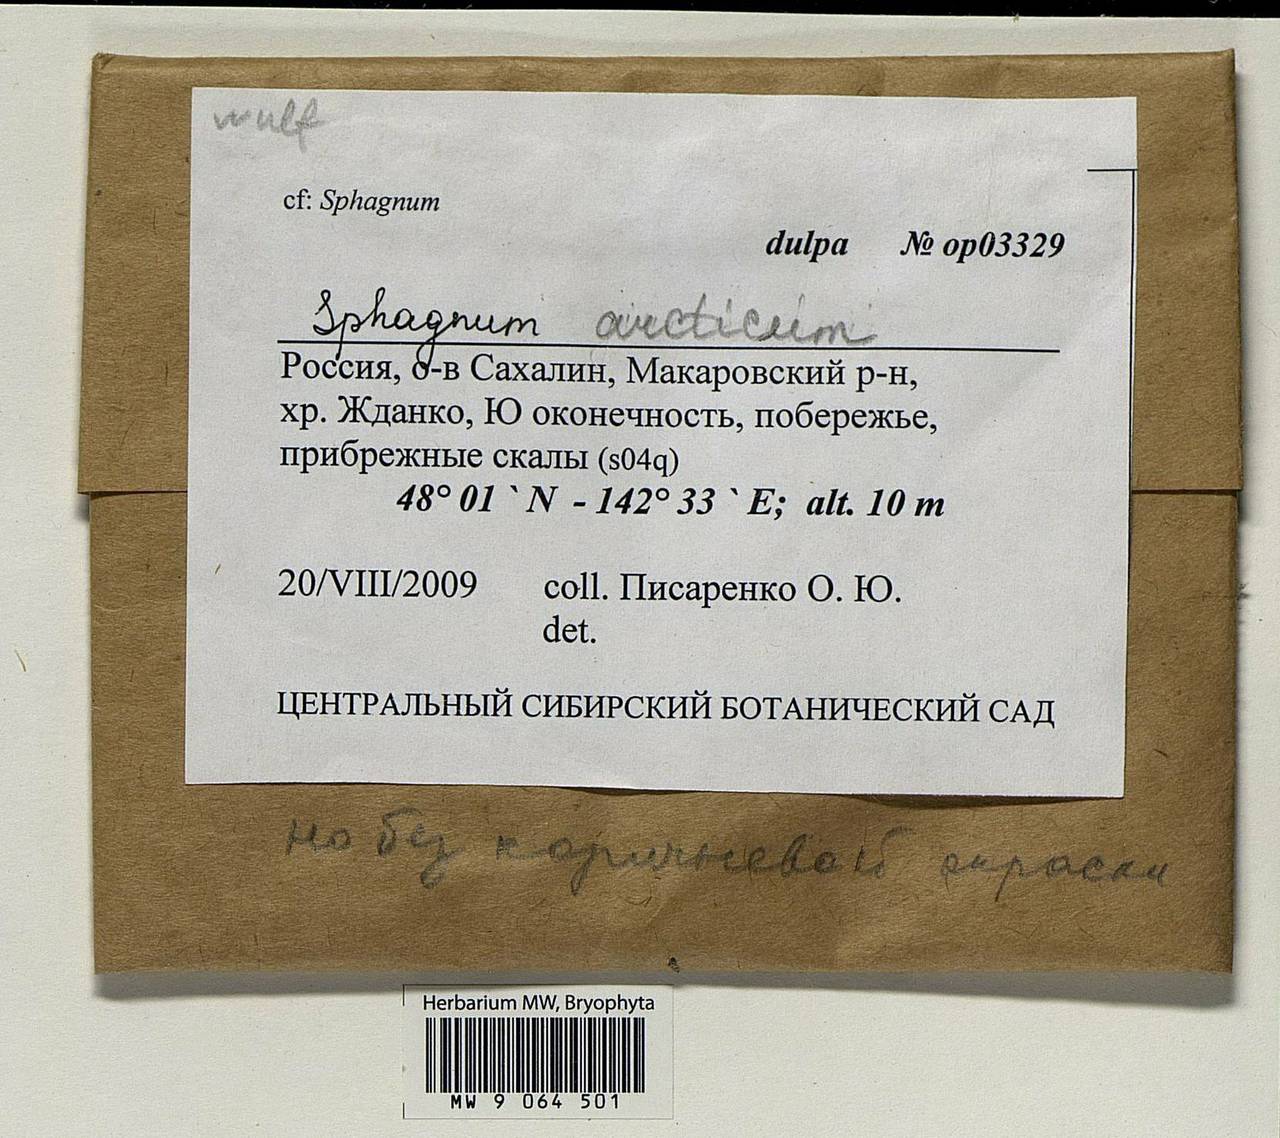 wulf
cf: Sphagnum
dulpa № op03329
Sphagnum arcticum
Россия, о-в Сахалин, Макаровский р-н,
хр. Жданко, Ю оконечность, побережье,
прибрежные скалы (s04q)
48° 01 ` N - 142° 33 ` E; alt. 10 m
20/VIII/2009 coll. Писаренко О. Ю.
det.
ЦЕНТРАЛЬНЫЙ СИБИРСКИЙ БОТАНИЧЕСКИЙ САД
но без коричневой окраски
Herbarium MW, Bryophyta
MW 9 064 501